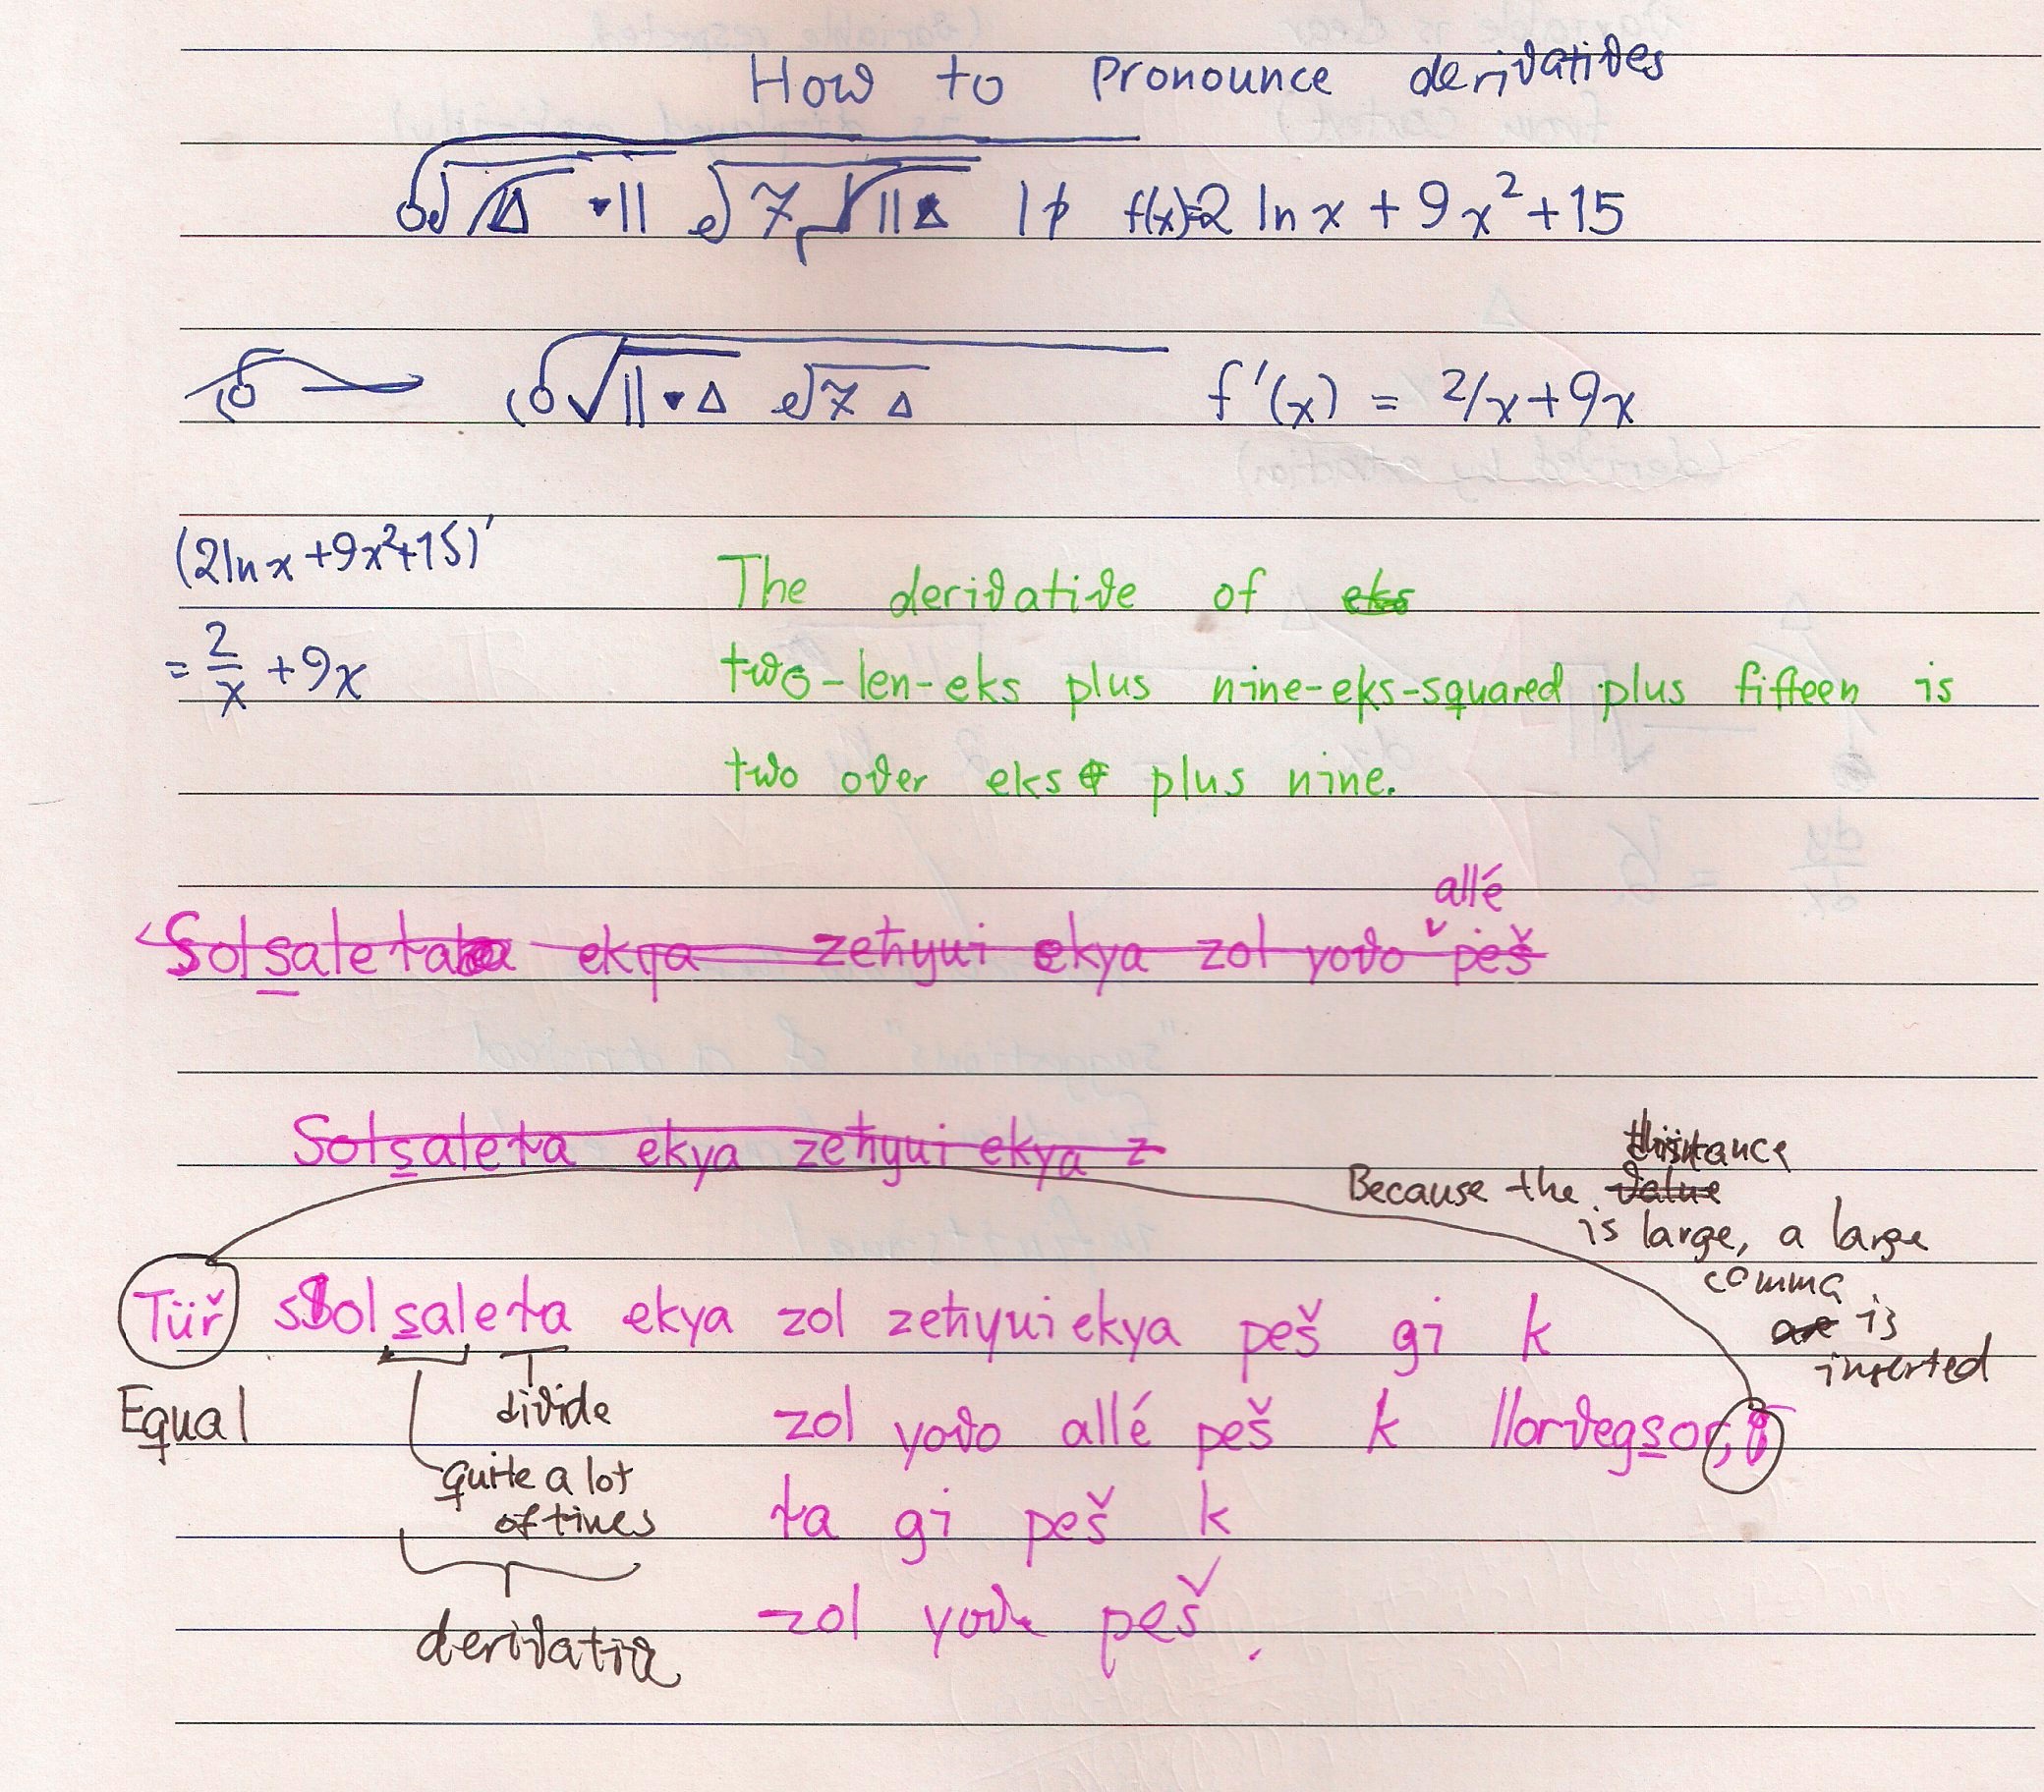 How to Pronounce derivatives
f(x)=2 ln x + 9x²+15
f'(x) = 2/x+9x
(2ln x +9x²+15)'
= 2/x +9x
The derivative of eks
two-len-eks plus nine-eks-squared plus fifteen is
two over eks plus nine.
allé
Solsaleta ekya zeħyui ekya zol yovo peš
Solsaleta ekya zeħyui ekya z
Because the distance
is large, a large
comma
is
inserted
Tüř solsaleta ekya zol zeħyui ekya peš gi k
Equal
divide
quite a lot
of times
derivative
zol yovo allé peš k llorvegsor,
ta gi peš k
zol peš.